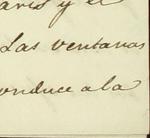 y el
Las ventanas
onduce a la